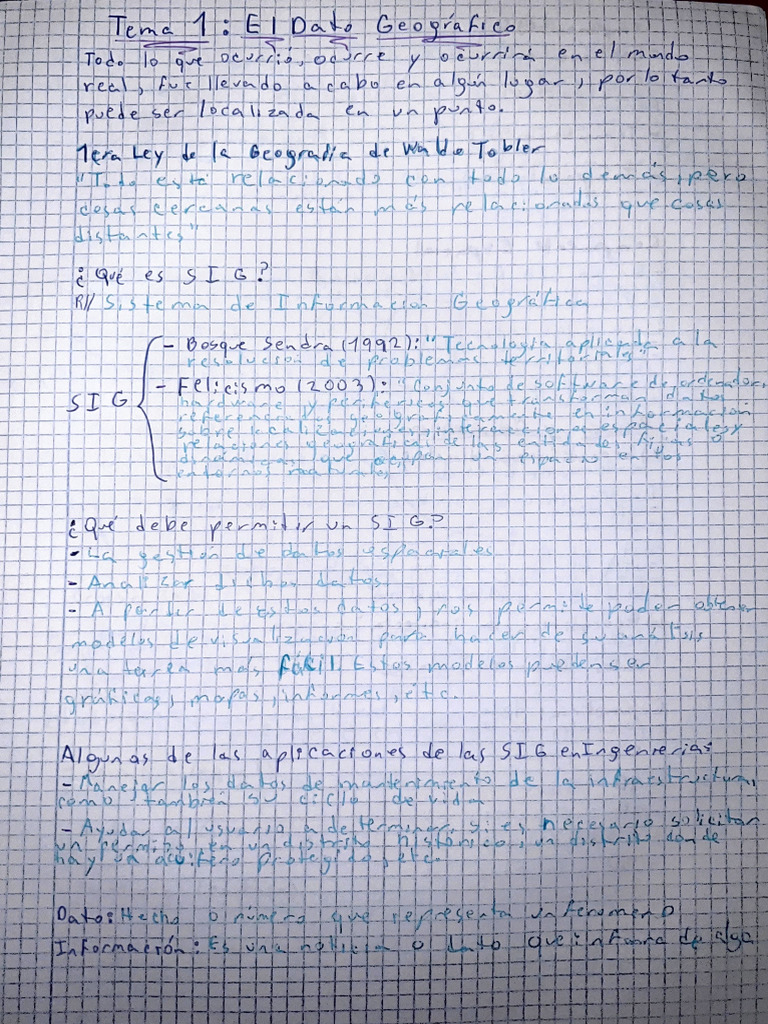 Tema 1: El Dato Geográfico
Todo lo que ocurrió, ocurre y ocurrirá en el mundo
real, fue llevado a cabo en algún lugar, por lo tanto
puede ser localizada en un punto.
1era Ley de la Geografía de Waldo Tobler
"Todo está relacionado con todo lo demás, pero
cosas cercanas están más relacionadas que cosas
distantes"
¿Qué es SIG?
R// Sistema de Informacion Geográfica
SIG
- Bosque Sendra (1992): "Tecnología aplicada a la
resolución de problemas territoriales"
- Felicismo (2003): "Conjunto de software de ordenador,
hardware y periféricos que transforman datos
referenciados geográficamente en información
sobre localizaciones, interacciones espaciales y
relaciones geográficas de las entidades fijas o
dinámicas que ocupan un espacio en los
entornos naturales
¿Qué debe permitir un SIG?
- La gestión de datos espaciales
- Analizar dichos datos
- A partir de estos datos, nos permite poder obtener
modelos de visualización para hacer de su análisis
una tarea más fácil. Estos modelos pueden ser
gráficas, mapas, informes, etc.
Algunas de las aplicaciones de las SIG en Ingenieria:
- Manejar los datos de mantenimiento de la infraestructura,
como también su ciclo de vida
- Ayudar al usuario a determinar si es necesario solicitar
un permiso en un distrito histórico, un distrito donde
hay un acuífero protegido, etc.
Dato: Hecho o número que representa un fenomeno
Información: Es una noticia o dato que informa de algo